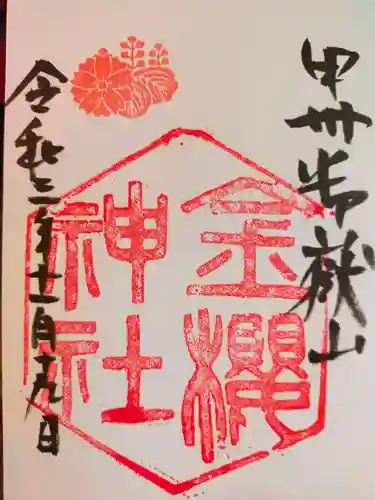 甲州御嶽山
金櫻
神社
令和三年十一月五日